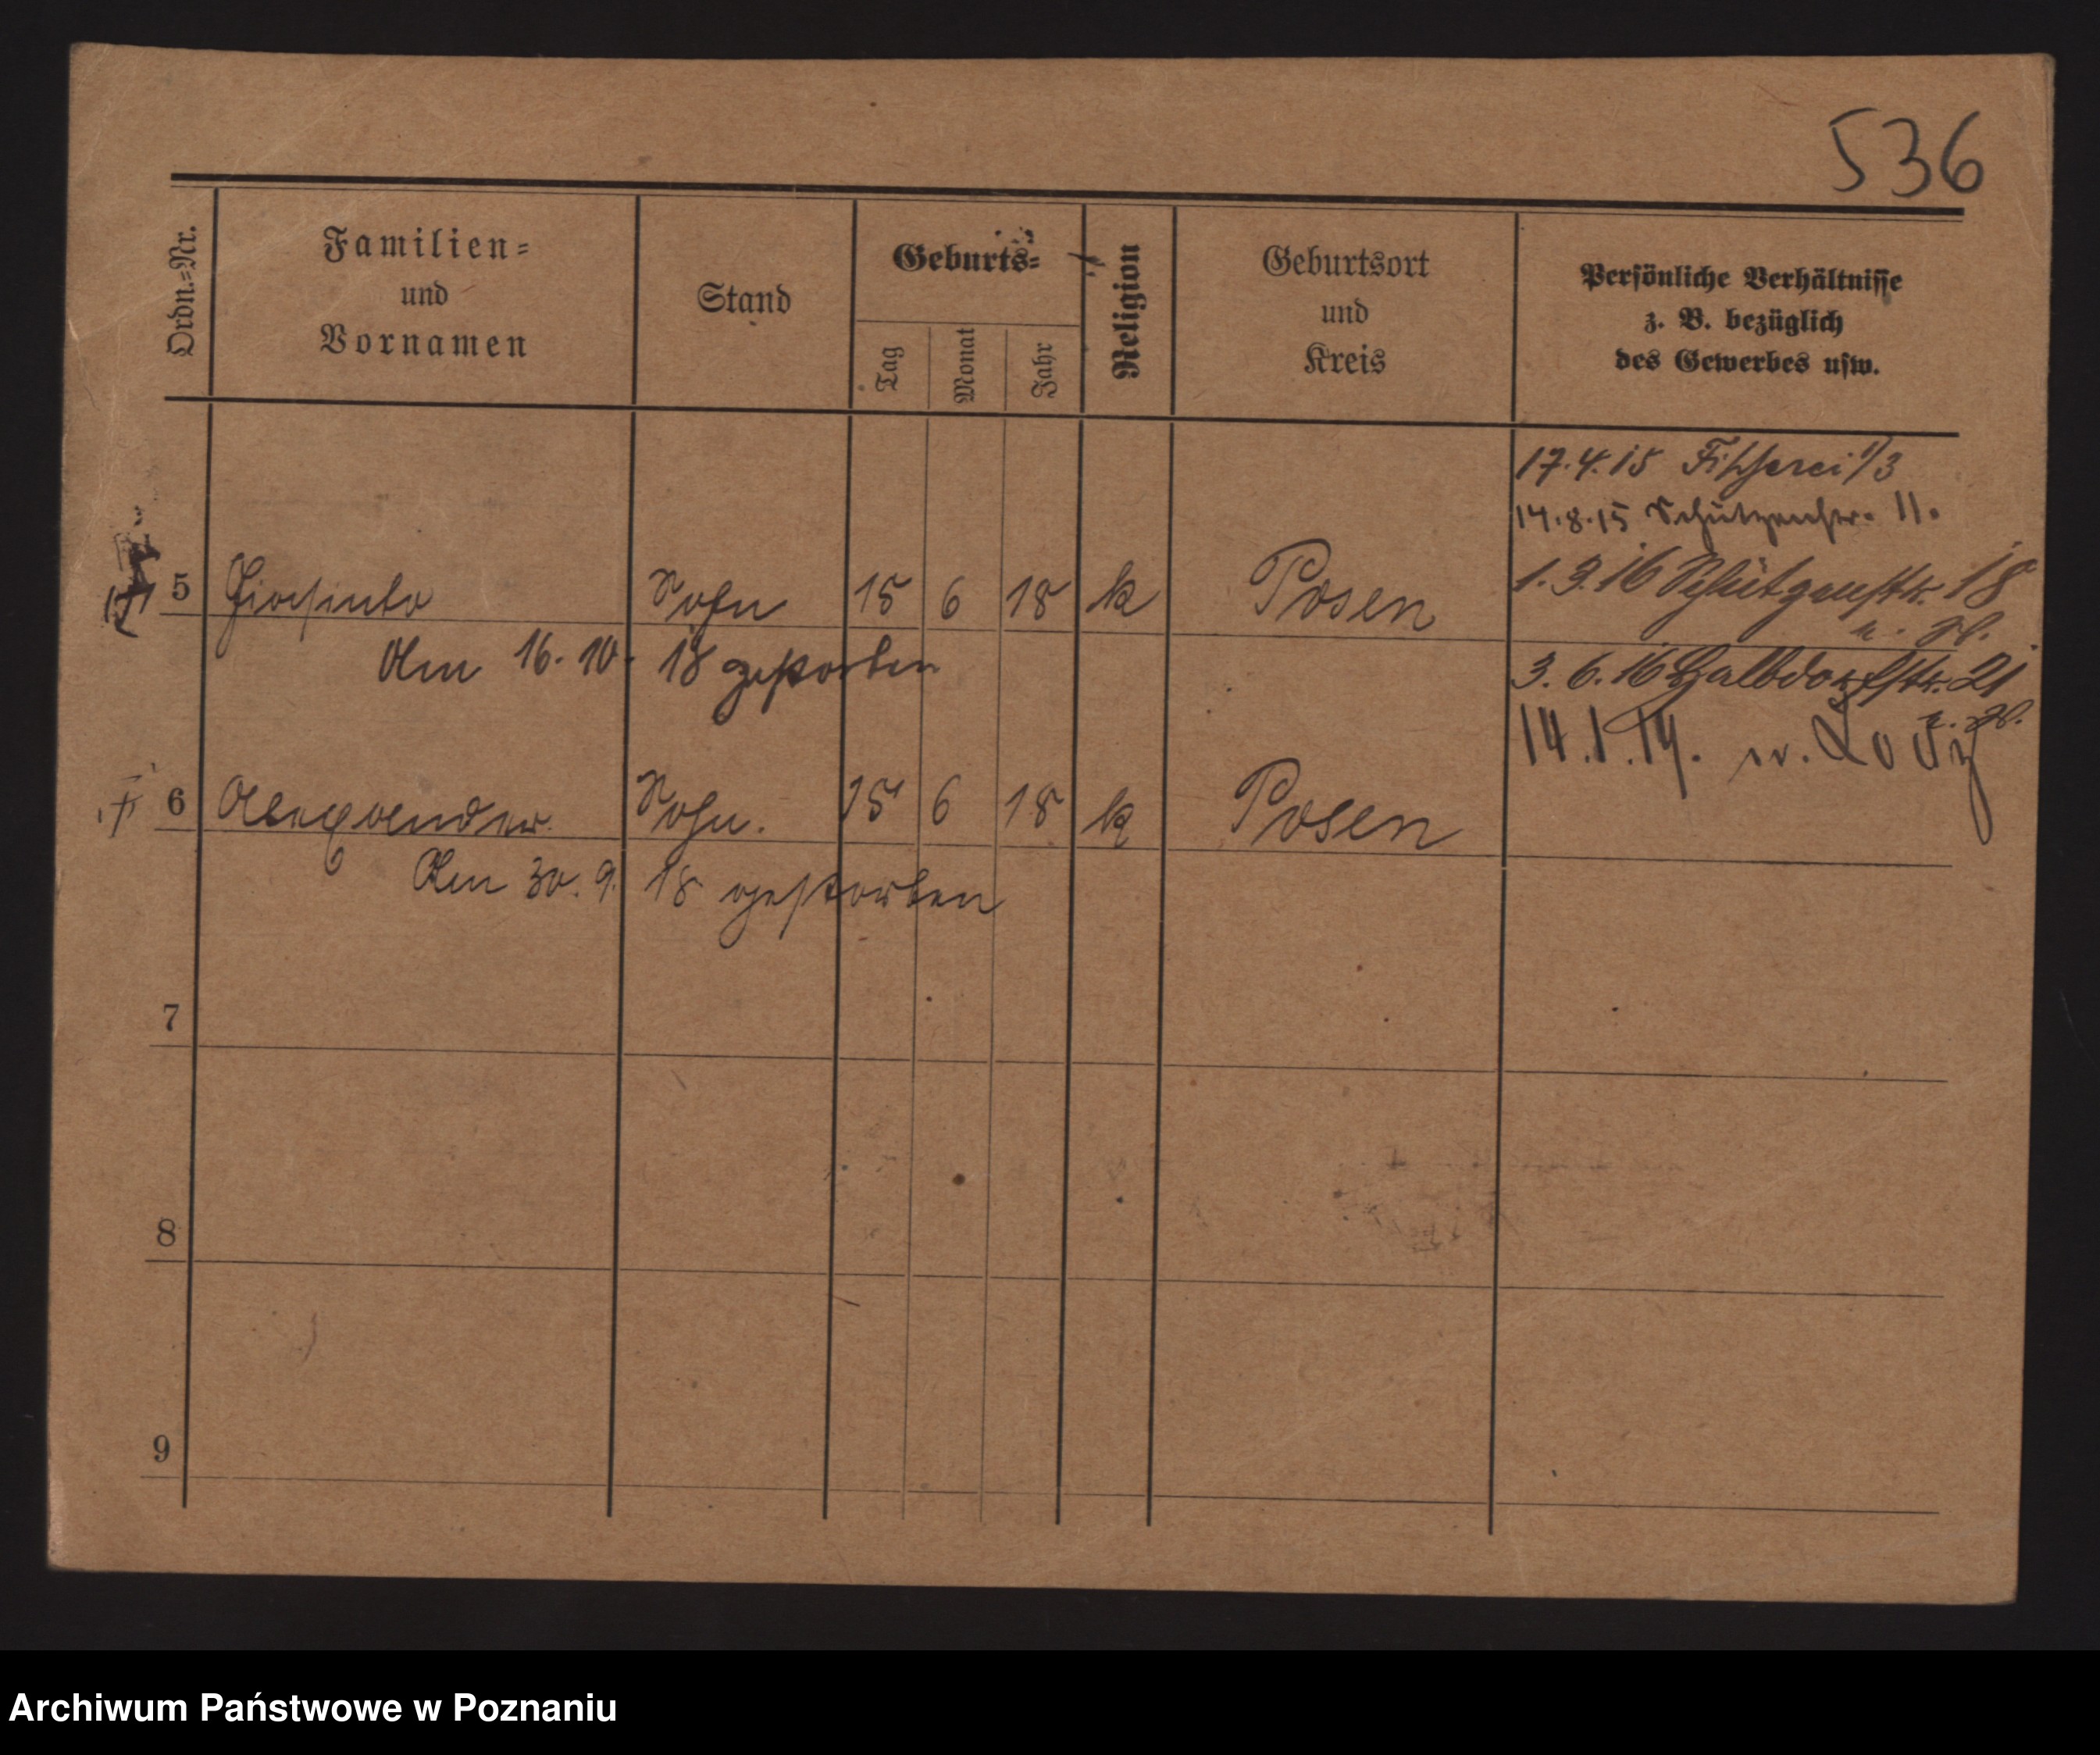 536
Ordn.=Nr.
Familien=
und
Vornamen
Stand
Geburts=
Tag
Monat
Jahr
Religion
Geburtsort
und
Kreis
Persönliche Verhältnisse
z. B. bezüglich
des Gewerbes usw.
17.4.15 Fischerei 1/3
14.8.15 Schützenstr. 11.
1.3.16 Schützenstr. 18
5 Sohn 15 6 18 k Posen
Am 16.10.18 gestorben
3.6.16 Halbdorfstr. 21
14.1.19.
6 Alexander Sohn. 15 6 18 k Posen
Am 30.9.18 gestorben
7
8
9
Archiwum Państwowe w Poznaniu